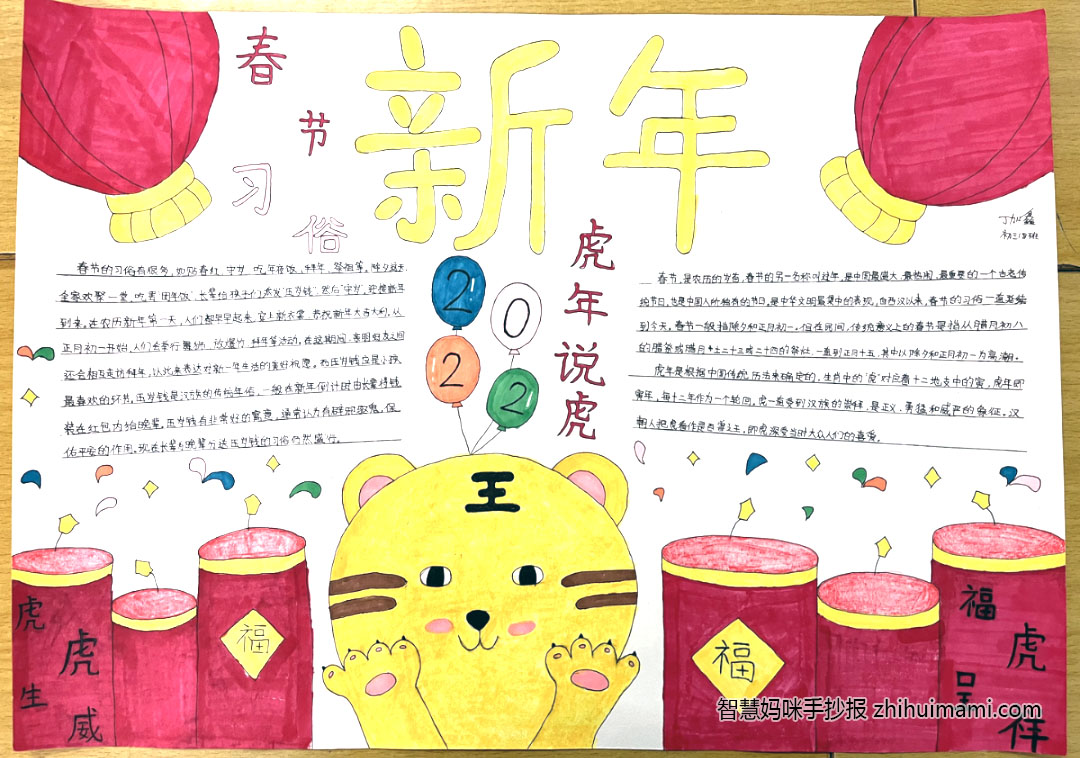 新年
春
节
习
俗
丁加鑫
春节的习俗有很多,如贴春红、守岁、吃年夜饭、拜年、祭祖等。除夕这天,
全家欢聚一堂,吃膏"团年饭",长辈给孩子们派发"压岁钱",然后"守岁",迎接新年
到来。在农历新年第一天,人们都早早起来,穿上新衣裳,恭祝新年大吉大利,从
正月初一开始,人们会举行舞狮、放爆竹、拜年等活动,在这期间,亲朋好友之间
还会相互走访拜年,以此来表达对新一年生活的美好祝愿。而压岁钱应是小孩
最喜欢的环节,压岁钱是汉族的传统年俗,一般在新年倒计时由长辈将钱
装在红包内给晚辈,压岁钱有非常好的寓意,通常认为有辟邪驱鬼,保
佑平安的作用,现在长辈与晚辈分送压岁钱的习俗仍然盛行。
2
0
2
2
虎
年
说
虎
春节,是农历的岁首,春节的另一名称叫过年,是中国最盛大、最热闹、最重要的一个古老传
统节日,也是中国人所独有的节日,是中华文明最集中的表现,自西汉以来,春节的习俗一直延续
到今天。春节一般指除夕和正月初一,但在民间,传统意义上的春节是指从腊月初八
的腊祭或腊月二十三或二十四的祭灶,一直到正月十五,其中以除夕和正月初一为高潮。
虎年是根据中国传统历法来确定的,生肖中的"虎"对应着十二地支中的寅,虎年即
寅年,每十二年作为一个轮回。虎一直受到汉族的崇拜,是正义、勇猛和威严的象征。汉
朝人把虎看作是百兽之王,即虎深受当时大众人们的喜爱。
王
虎
虎
生
威
福
福
福
虎
呈
祥
智慧妈咪手抄报 zhihuimami.com